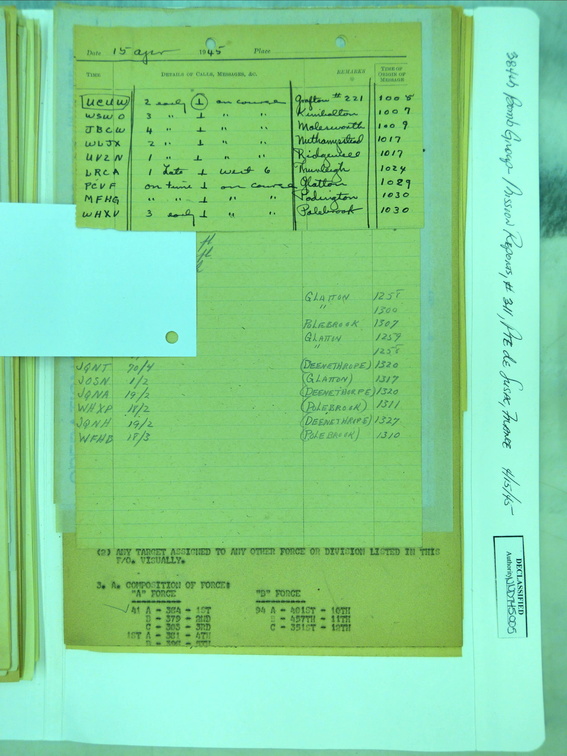 Date 15 apr 1945 Place
TIME DETAILS OF CALLS, MESSAGES, &C. REMARKS TIME OF ORIGIN OF MESSAGE
UCUW 2 early ⊥ on course Grafton # 221 1008
WSWO 3 " ⊥ " " Kimbolton 1007
JBCW 4 " ⊥ " " Molesworth 1009
WLJX 2 " ⊥ " " Nuthampstead 1017
UVZN 1 " ⊥ " " Ridgewell 1017
LRCA 1 Late ⊥ west 6 Thurleigh 1024
PCVF on time ⊥ on course Glatton 1029
MFHG " " ⊥ " " Podington 1030
WHXV 3 early ⊥ " " Polebrook 1030
GLATTON
" 1300
POLEBROOK 1307
GLATTON 1259
"
JGNT 20/4 (DEENETHROPE) 1320
JOSN 1/2 (GLATTON) 1317
JQNA 19/2 (DEENETHORPE) 1320
WHXP 18/2 (POLEBROOK) 1311
JQNH 19/2 (DEENETHROPE) 1327
WFHD 18/3 (POLEBROOK) 1310
(2) ANY TARGET ASSIGNED TO ANY OTHER FORCE OR DIVISION LISTED IN THIS
F/O. VISUALLY.
3. A. COMPOSITION OF FORCE:
"A" FORCE "B" FORCE
41 A - 384 - 1ST 94 A - 401ST - 10TH
B - 379 - 2ND B - 457TH - 11TH
C - 303 - 3RD C - 351ST - 12TH
1ST A - 381 - 4TH
384th Bomb Group Mission Reports, # 311, Pte de Susac, France 4/15/45
DECLASSIFIED
Authority NND745005